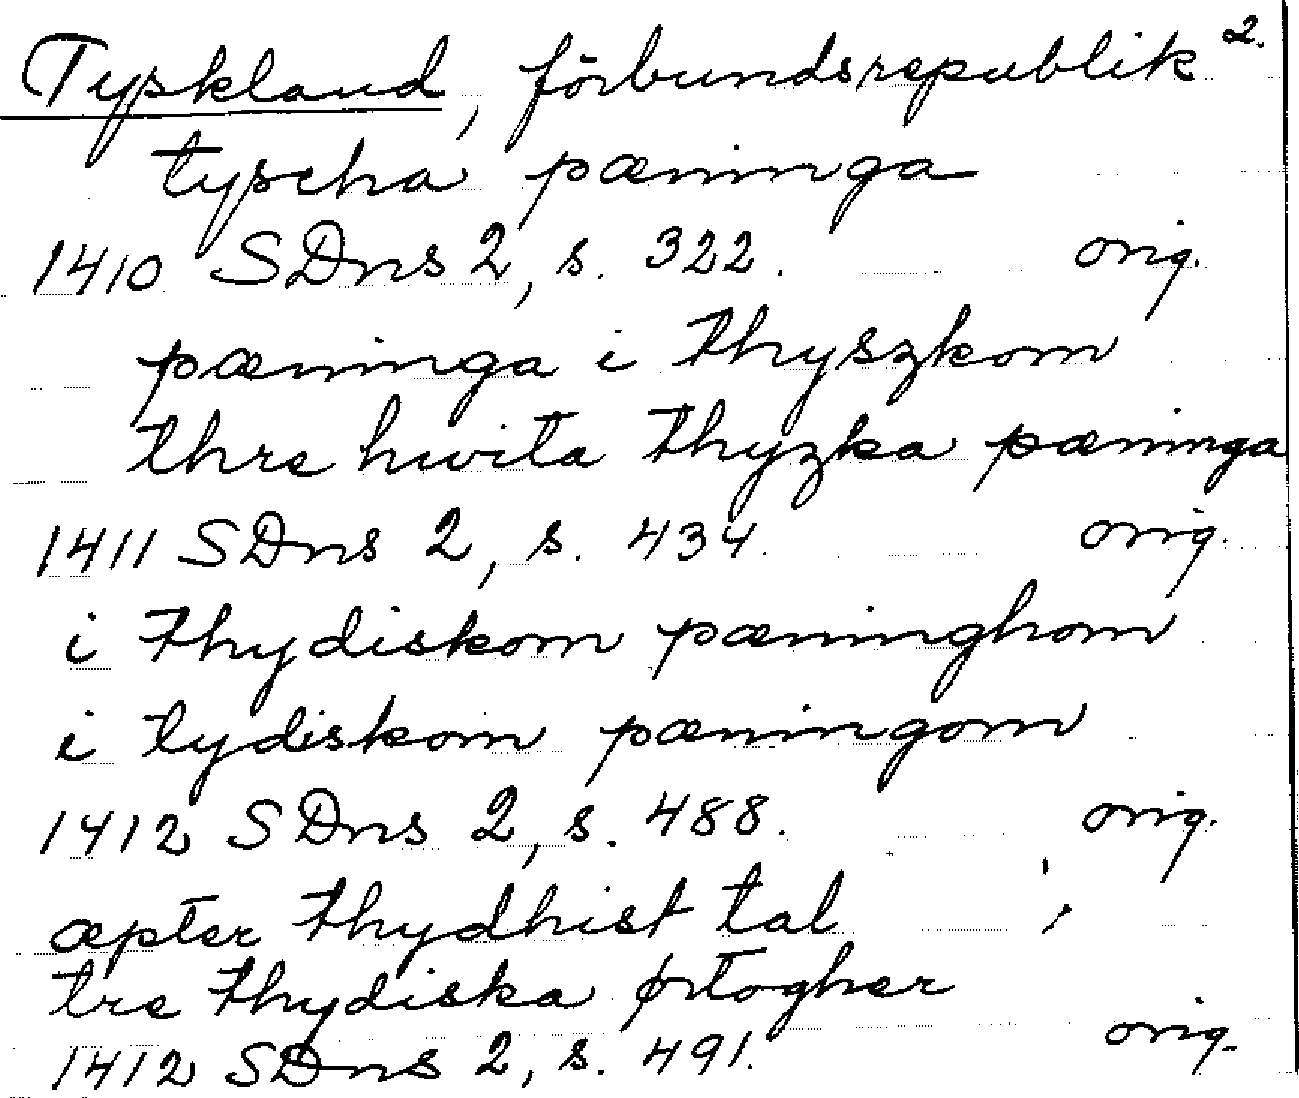 Tyskland, förbundsrepublik 2.
tyscha pæninga
1410 SDns 2, s. 322. orig.
pæninga i thyszkom
thre hwita thyzka pæninga
1411 SDns 2, s. 434. orig.
i thydiskom pæninghom
i tydiskom pæningom
1412 SDns 2, s. 488. orig.
æpter thydhist tal
tre thydiska ørtogher
1412 SDns 2, s. 491. orig.